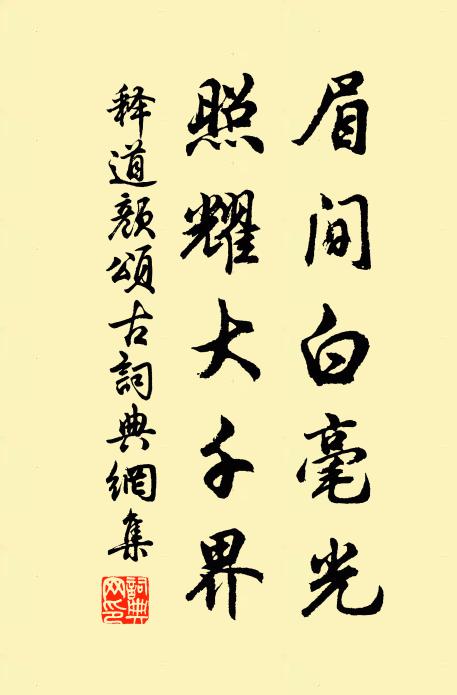 眉间白毫光
照耀大千界
释道颜颂古词典網集
詞典网印